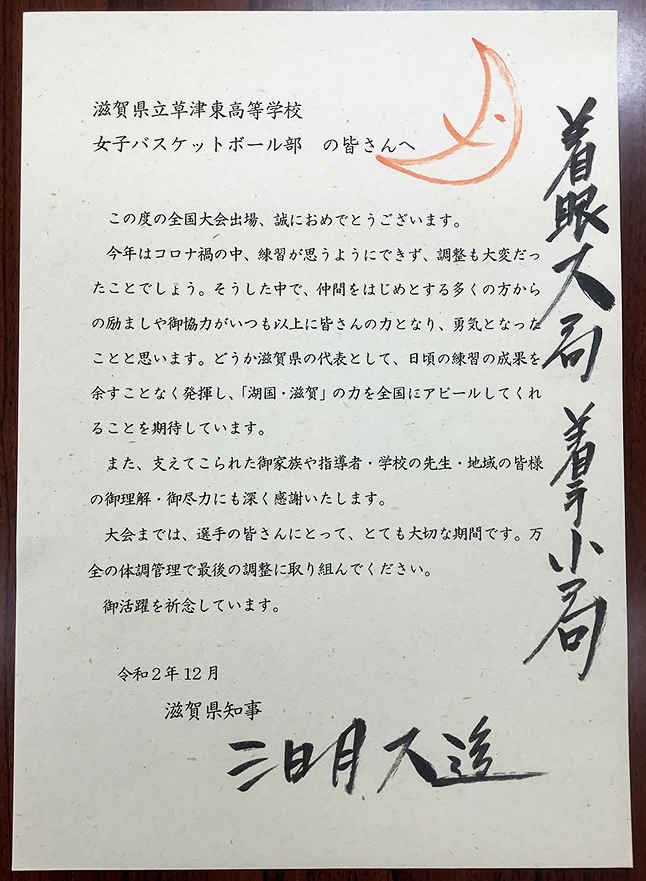 滋賀県立草津東高等学校
女子バスケットボール部　の皆さんへ
この度の全国大会出場、誠におめでとうございます。
今年はコロナ禍の中、練習が思うようにできず、調整も大変だっ
たことでしょう。そうした中で、仲間をはじめとする多くの方から
の励ましや御協力がいつも以上に皆さんの力となり、勇気となった
ことと思います。どうか滋賀県の代表として、日頃の練習の成果を
余すことなく発揮し、「湖国・滋賀」の力を全国にアピールしてくれ
ることを期待しています。
また、支えてこられた御家族や指導者・学校の先生・地域の皆様
の御理解・御尽力にも深く感謝いたします。
大会までは、選手の皆さんにとって、とても大切な期間です。万
全の体調管理で最後の調整に取り組んでください。
御活躍を祈念しています。
令和２年12月
滋賀県知事
三日月大造
着眼大局 着手小局